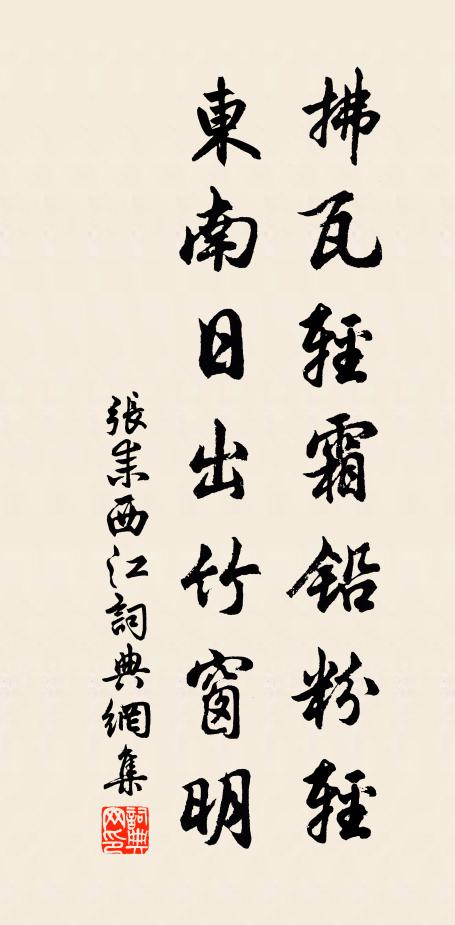 拂瓦輕霜鉛粉輕
東南日出竹窗明
張耒西江詞典網集
詞典網印